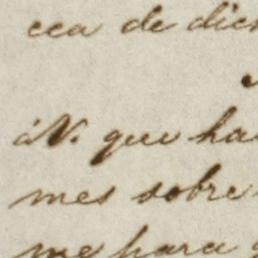 cca de dici
á N. que ha
mes sobre
me para q